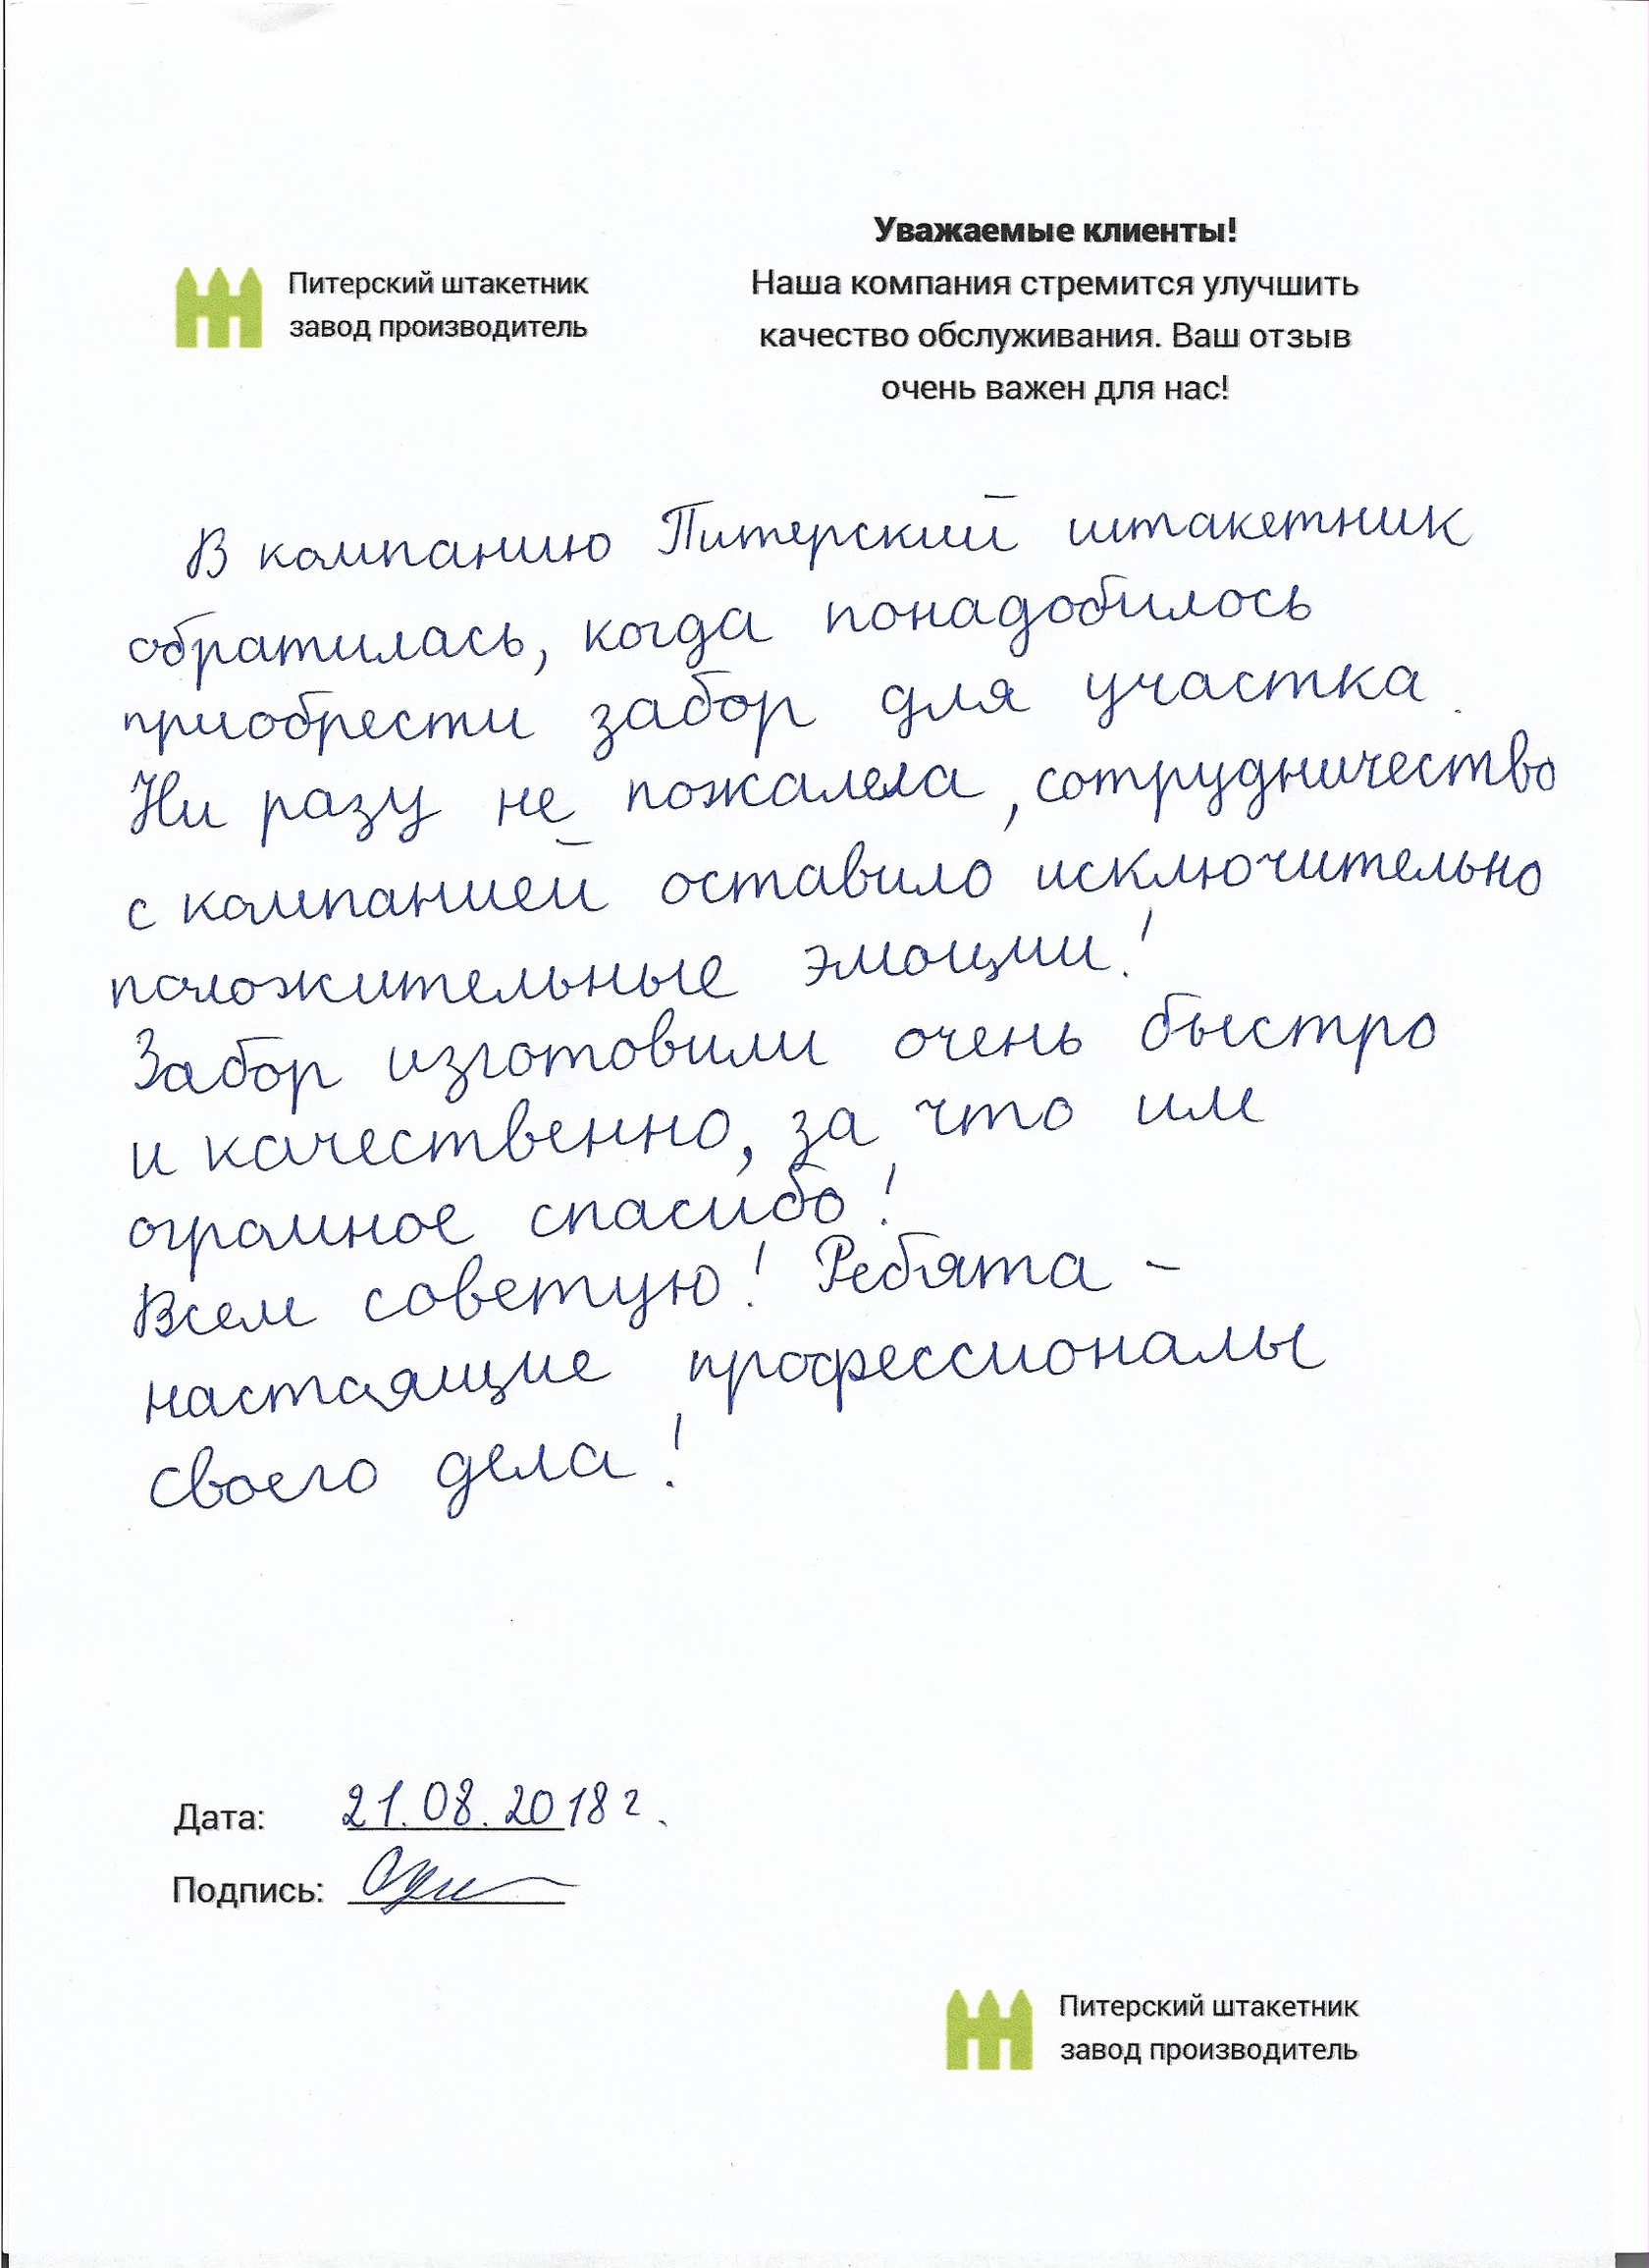 Питерский штакетник
завод производитель
Уважаемые клиенты!
Наша компания стремится улучшить
качество обслуживания. Ваш отзыв
очень важен для нас!
В компанию Питерский штакетник
обратилась, когда понадобилось
приобрести забор для участка.
Ни разу не пожалела, сотрудничество
с компанией оставило исключительно
положительные эмоции!
Забор изготовили очень быстро
и качественно, за что им
огромное спасибо!
Всем советую! Ребята -
настоящие профессионалы
своего дела!
Дата: 21.08.2018 г.
Подпись:
Питерский штакетник
завод производитель